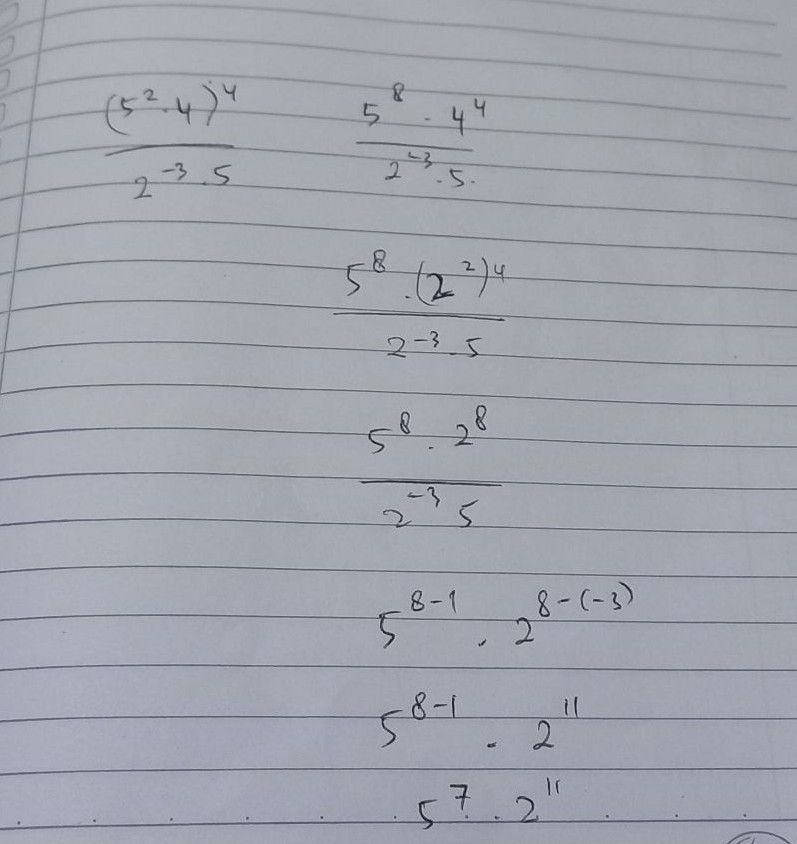 (5² · 4)⁴ / 2⁻³ · 5    5⁸ · 4⁴ / 2⁻³ · 5 ·
5⁸ · (2²)⁴ / 2⁻³ · 5
5⁸ · 2⁸ / 2⁻³ 5
5⁸⁻¹ · 2⁸⁻⁽⁻³⁾
5⁸⁻¹ · 2¹¹
5⁷ · 2¹¹